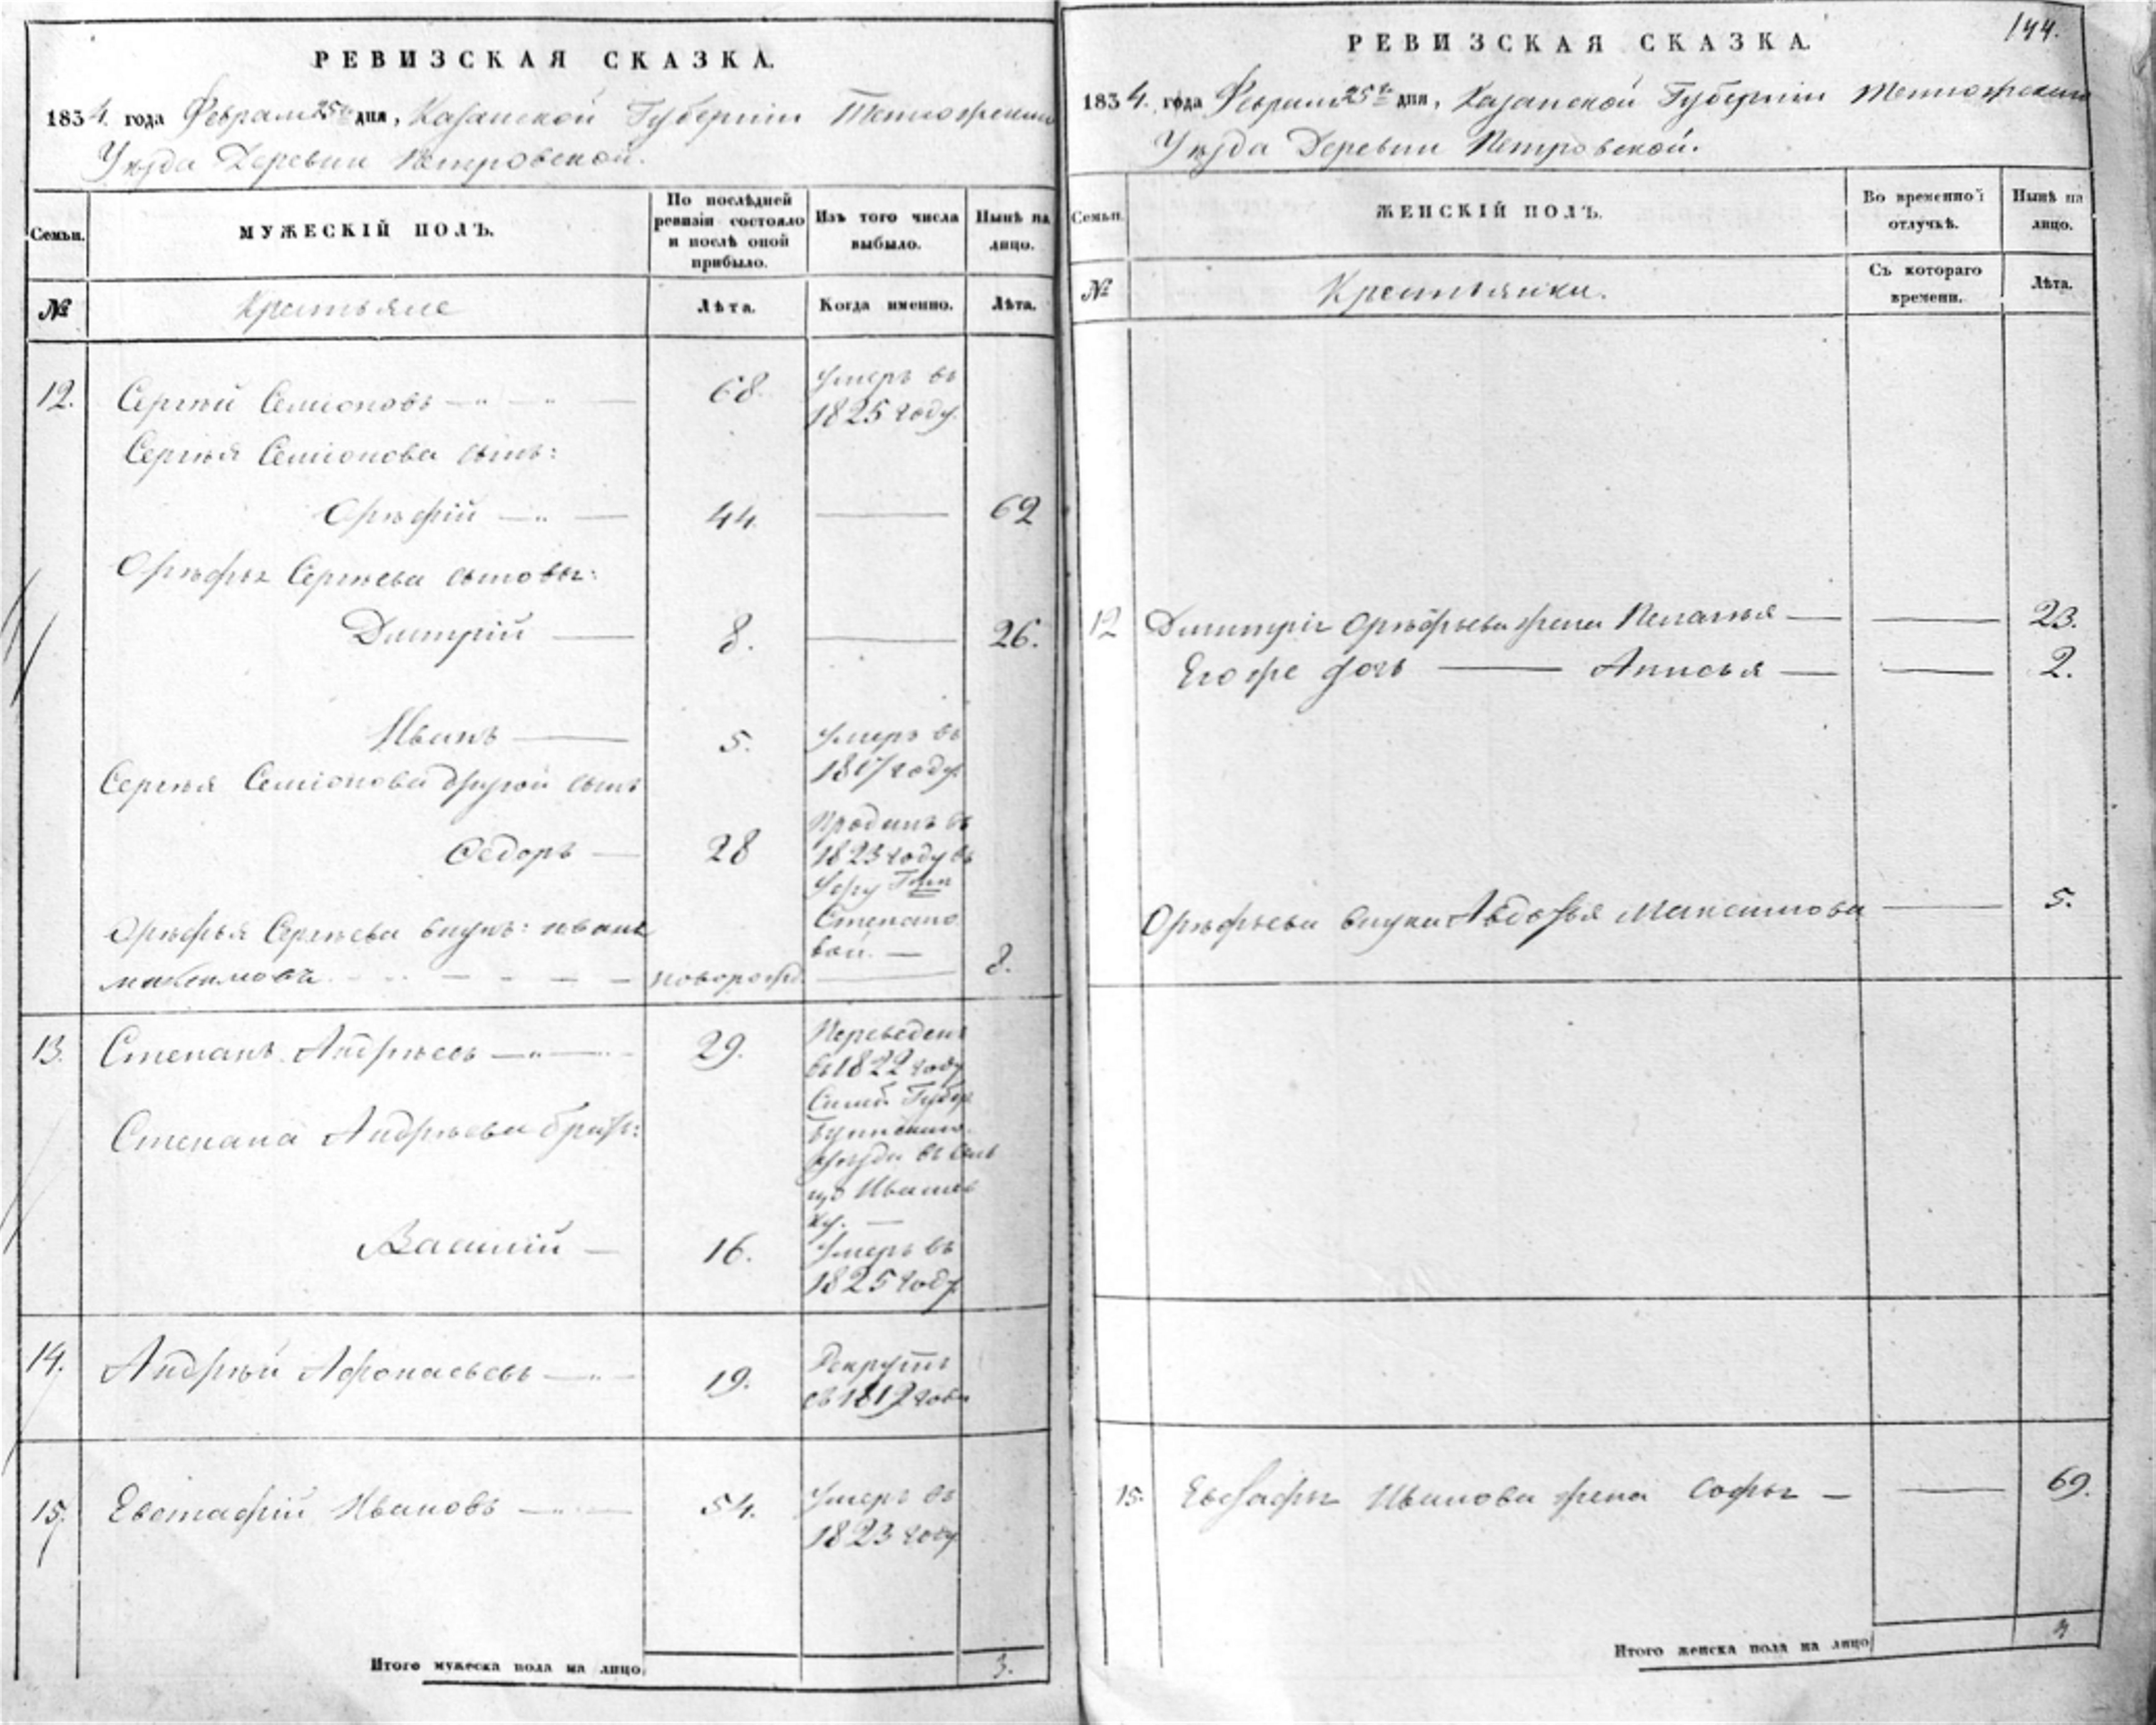 РЕВИЗСКАЯ СКАЗКА.
1834. года Февраля 25го дня, Казанской Губерніи Тетюжскаго
Уѣзда Деревни Петровской.
Семьи.
МУЖЕСКІЙ ПОЛЪ.
По послѣдней ревизіи состояло и послѣ оной прибыло.
Изъ того числа выбыло.
Нынѣ на лицо.
№
Крестьяне
Лѣта.
Когда именно.
Лѣта.
12. Сергѣй Семіоновъ 68. умеръ въ
1825 году.
Сергѣя Семіонова сынъ:
Орѣфій 44. 62
Орѣфья Сергѣева сыновья:
Дмитрій 8. 26.
Иванъ 5. умеръ въ
1817 году
Сергѣя Семіонова другой сынъ
Ѳедоръ 28 Проданъ въ
1823 году въ
Степано
вой.
Орѣфья Сергѣева внукъ: иванъ
максимовъ новорожд. 8.
13. Степанъ Андрѣевъ 29. Переведенъ
въ 1822 году
Симб. Губер.
Буинскаго
уѣзда въ сель
цо Ивашев
ку.
Степана Андрѣева братъ:
Василій 16. Умеръ въ
1825 году
14. Андрѣй Афонасьевъ 19. Рекрутъ
съ 1812 года
15. Евстафій Ивановъ 54. Умеръ въ
1823 году
Итого мужеска пола на лицо 3.
144.
РЕВИЗСКАЯ СКАЗКА.
1834. года Февраля 25го дня, Казанской Губерніи Тетюжскаго
Уѣзда Деревни Петровской.
Семьи.
ЖЕНСКІЙ ПОЛЪ.
Во временной отлучкѣ.
Нынѣ на лицо.
№
Крестьянки.
Съ котораго времени.
Лѣта.
12 Дмитрія Орѣфьева жена Пелагья 23.
Его же дочь Анисья 2.
Орѣфьева внука Авдотья Максимова 5.
15. Евстафья Иванова жена Софья 69.
Итого женска пола на лицо